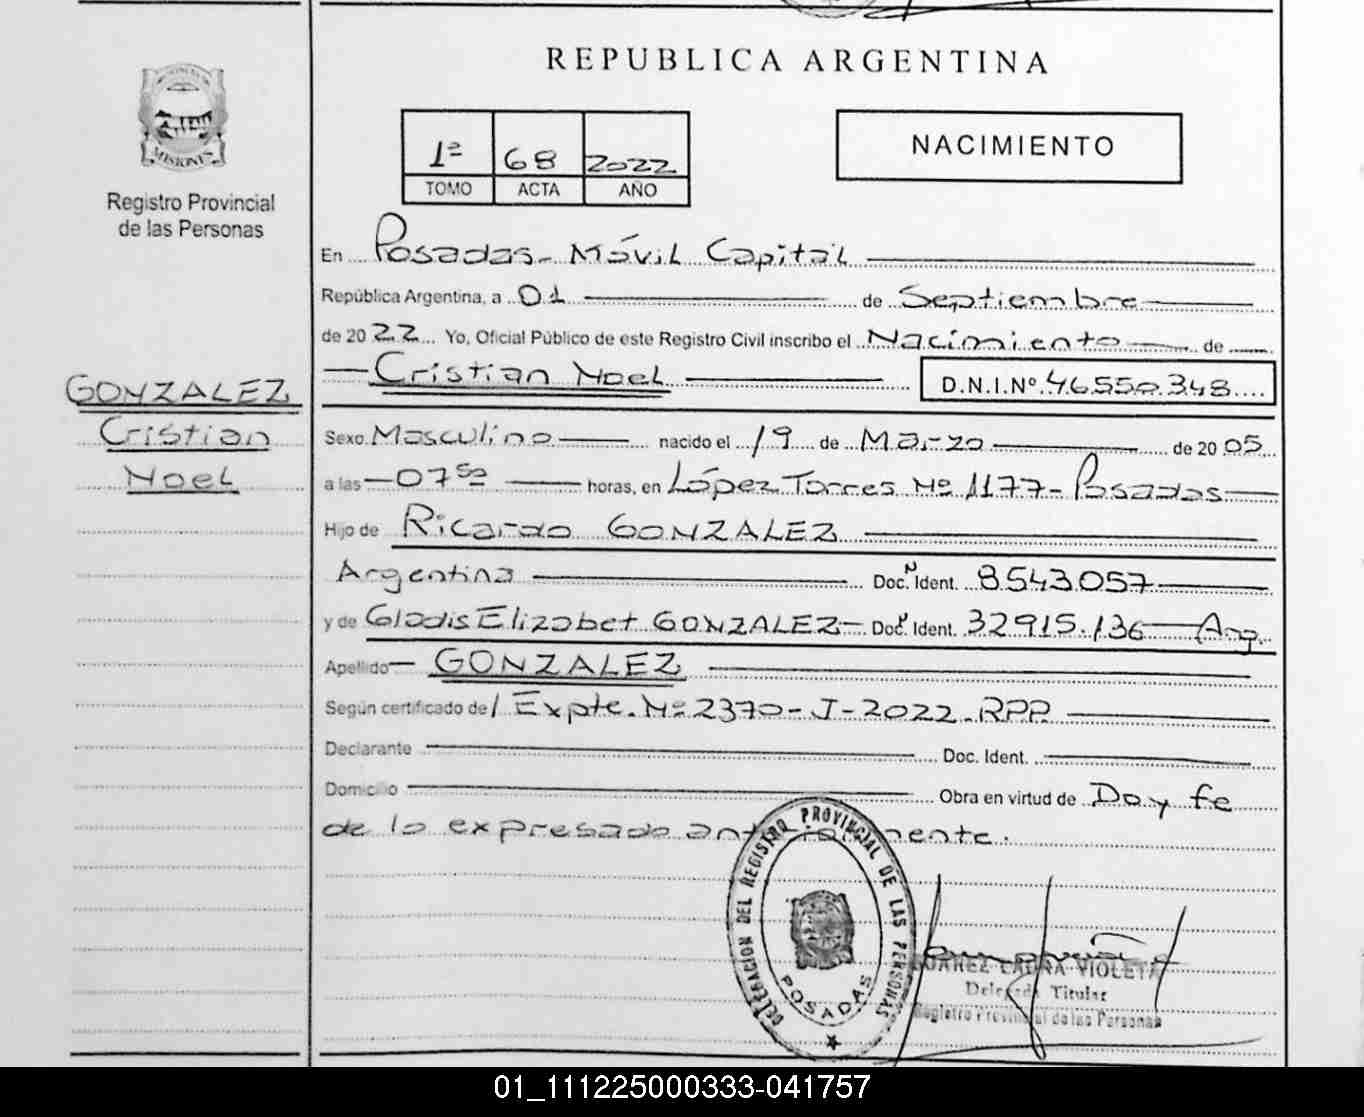 REPUBLICA ARGENTINA
MISIONES
Registro Provincial
de las Personas
1ª 68 2022
TOMO ACTA AÑO
NACIMIENTO
En Posadas - Móvil Capital
República Argentina, a 01 de Septiembre
de 2022 Yo, Oficial Público de este Registro Civil inscribo el Nacimiento de
Cristian Noel D.N.I.Nº 46.550.348
GONZALEZ
Cristian
Noel
Sexo Masculino nacido el 19 de Marzo de 2005
a las 07 50 horas, en López Torres Nº 1177 - Posadas
Hijo de Ricardo GONZALEZ
Argentina Doc. N Ident. 8.543.057
y de Gladis Elizabet GONZALEZ Doc. Ident. 32.915.136 Arg.
Apellido GONZALEZ
Según certificado de / Expte. Nº 2370-J-2022. RPP.
Declarante Doc. Ident.
Domicilio Obra en virtud de Doy fe
de lo expresado anteriormente.
DELEGACION DEL REGISTRO PROVINCIAL DE LAS PERSONAS
POSADAS
SUAREZ LAURA VIOLETA
Delegada Titular
Registro Provincial de las Personas
01_111225000333-041757